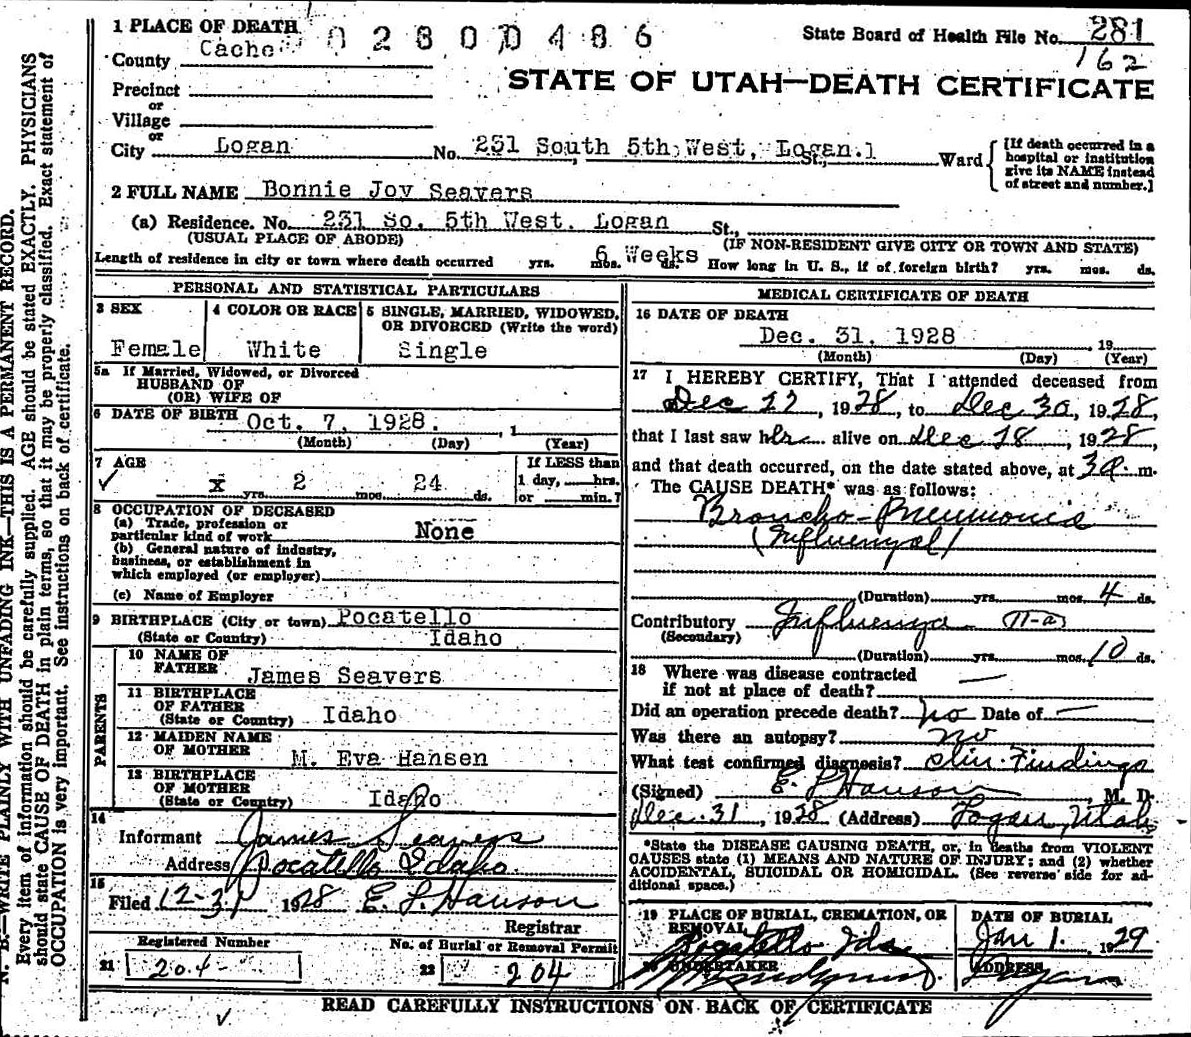 1 PLACE OF DEATH
02800486
State Board of Health File No. 281
162
County Cache
STATE OF UTAH—DEATH CERTIFICATE
Precinct
or
Village
or
City Logan No. 231 South 5th West, Logan. St., 1 Ward
[If death occurred in a
hospital or institution
give its NAME instead
of street and number.]
2 FULL NAME Bonnie Joy Seavers
(a) Residence. No. 231 So. 5th West. Logan St.,
(USUAL PLACE OF ABODE) (IF NON-RESIDENT GIVE CITY OR TOWN AND STATE)
Length of residence in city or town where death occurred yrs. mos. 6 Weeks ds. How long in U. S., if of foreign birth? yrs. mos. ds.
PERSONAL AND STATISTICAL PARTICULARS
3 SEX
Female
4 COLOR OR RACE
White
5 SINGLE, MARRIED, WIDOWED,
OR DIVORCED (Write the word)
Single
5a If Married, Widowed, or Divorced
HUSBAND OF
(OR) WIFE OF
6 DATE OF BIRTH Oct. 7, 1928. , 1
(Month) (Day) (Year)
7 AGE
✓ x yrs. 2 mos. 24 ds.
If LESS than
1 day, hrs.
or min.?
8 OCCUPATION OF DECEASED
(a) Trade, profession or
particular kind of work None
(b) General nature of industry,
business, or establishment in
which employed (or employer)
(c) Name of Employer
9 BIRTHPLACE (City or town) Pocatello
(State or Country) Idaho
PARENTS
10 NAME OF
FATHER James Seavers
11 BIRTHPLACE
OF FATHER
(State or Country) Idaho
12 MAIDEN NAME
OF MOTHER M. Eva Hansen
13 BIRTHPLACE
OF MOTHER
(State or Country) Idaho
14
Informant James Seavers
Address Pocatello Idaho.
15
Filed 12-31 1928 E. L. Hanson
Registrar
Registered Number
21 204
No. of Burial or Removal Permit
22 204
MEDICAL CERTIFICATE OF DEATH
16 DATE OF DEATH
Dec. 31, 1928 , 19
(Month) (Day) (Year)
17 I HEREBY CERTIFY, That I attended deceased from
Dec 27, 1928, to Dec 30, 1928,
that I last saw her alive on Dec 28, 1928,
and that death occurred, on the date stated above, at 3 a. m.
The CAUSE DEATH* was as follows:
Broncho-Pneumonia
(Influenzal)
(Duration) yrs. mos. 4 ds.
Contributory Influenza 11-a
(Secondary)
(Duration) yrs. mos. 10 ds.
18 Where was disease contracted
if not at place of death? —
Did an operation precede death? no Date of —
Was there an autopsy? no
What test confirmed diagnosis? Clin. Findings
(Signed) E. L. Hanson, M. D.
Dec. 31, 1928 (Address) Logan, Utah
*State the DISEASE CAUSING DEATH, or, in deaths from VIOLENT
CAUSES state (1) MEANS AND NATURE OF INJURY; and (2) whether
ACCIDENTAL, SUICIDAL OR HOMICIDAL. (See reverse side for ad-
ditional space.)
19 PLACE OF BURIAL, CREMATION, OR
REMOVAL
Pocatello Ida
DATE OF BURIAL
Jan 1. 1929
20 UNDERTAKER
ADDRESS
Logan
READ CAREFULLY INSTRUCTIONS ON BACK OF CERTIFICATE
N. B.—WRITE PLAINLY WITH UNFADING INK—THIS IS A PERMANENT RECORD.
Every item of information should be carefully supplied. AGE should be stated EXACTLY. PHYSICIANS
should state CAUSE OF DEATH in plain terms, so that it may be properly classified. Exact statement of
OCCUPATION is very important. See instructions on back of certificate.